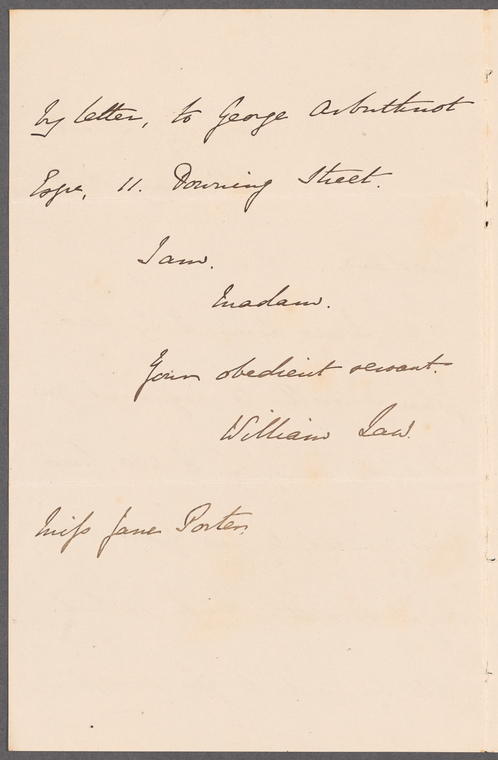 by letter, to George Arbuthnot
Esqre, 11. Downing Street.
I am.
Madam.
Your obedient servant.
William Law.
Miss Jane Porter.